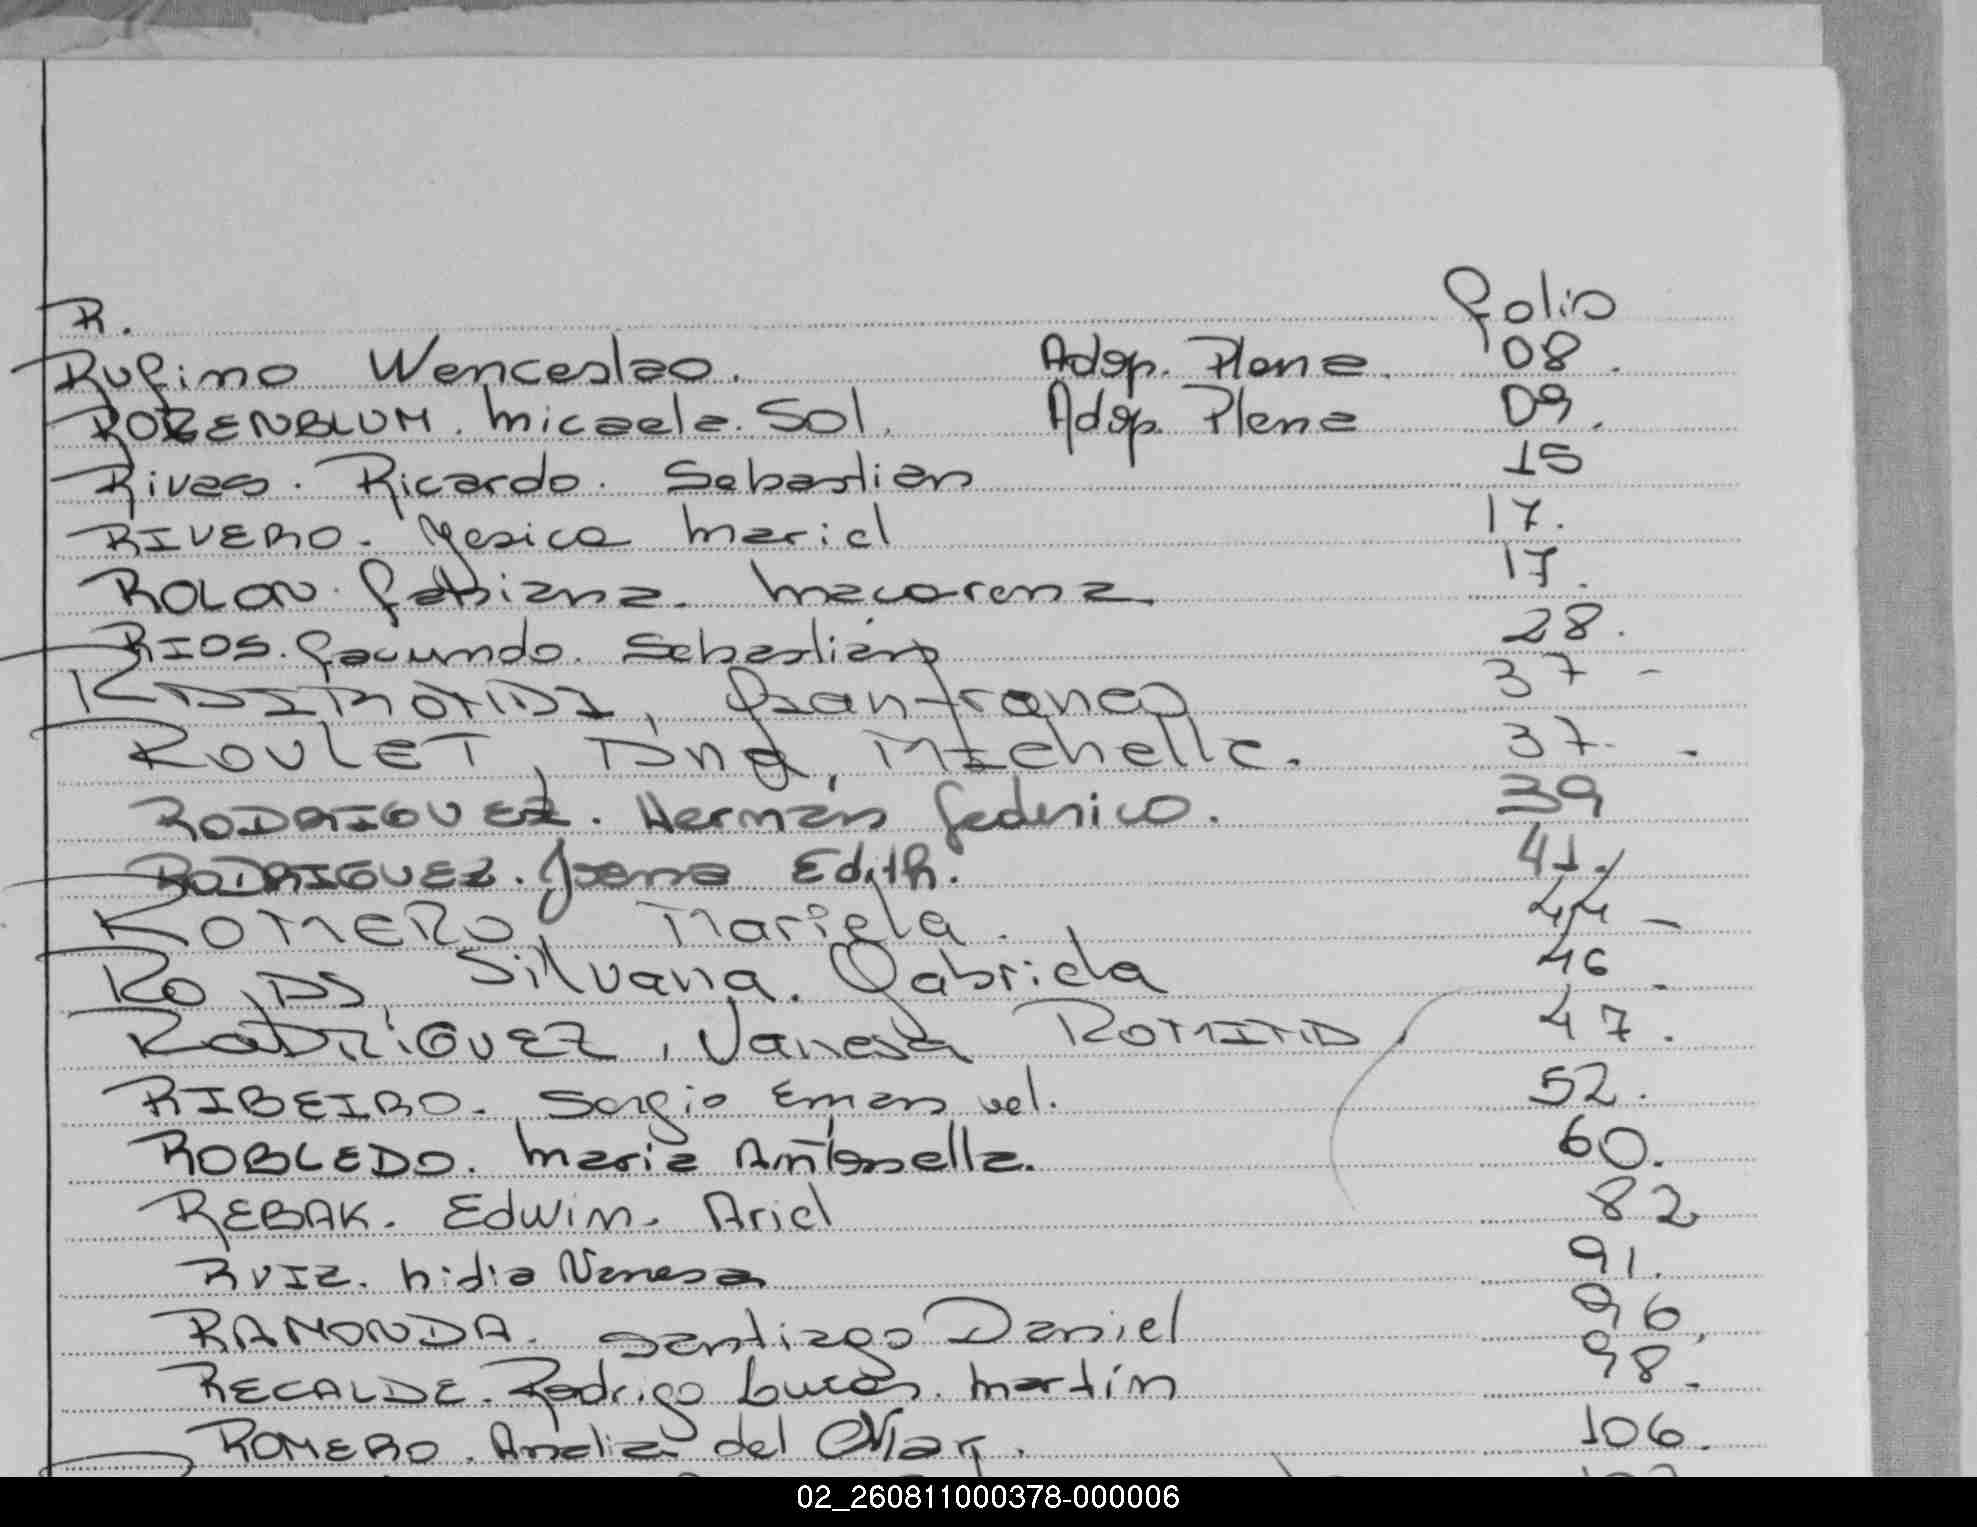 R. folio
Rufino Wenceslao. Adop. Plena. 08.
ROZENBLUM. Micaela. Sol. Adop. Plena 09.
Rivas. Ricardo. Sebastian 15
RIVERO. Yesica Mariel 17.
ROLON. Fabiana. Macarena. 17.
RIOS. Facundo. Sebastián 28.
Gianfranco 37 -
ROULET, Ana, Michelle. 37. -
RODRIGUEZ. Hernán Federico. 39
RODRIGUEZ. Joana Edith. 41.
ROMERO, Mariela. 44 -
Silvana. Gabriela 46.
RODRIGUEZ, Vanesa ROMINA 47.
RIBEIRO. Sergio Emanuel. 52.
ROBLEDO. Maria Antonella. 60.
REBAK. Edwin. Ariel 82
RUIZ. Lidia Vanesa 91.
RAMONDA. Santiago Daniel 96,
RECALDE. Rodrigo Lucas. Martín 98.
ROMERO. Analia del Mar. 106.
02_260811000378-000006